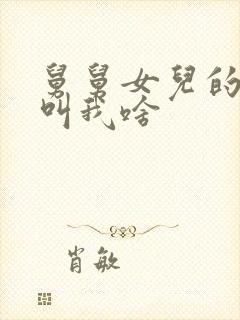 舅舅女兒的
叫我啥
肖敏